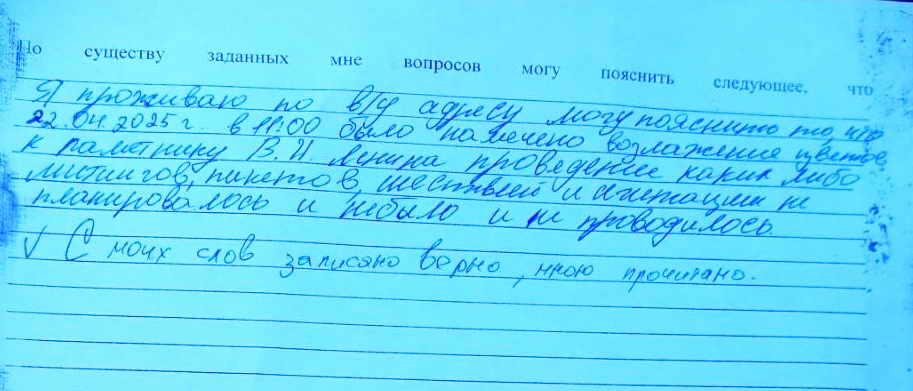 По существу заданных мне вопросов могу пояснить следующее, что
Я проживаю по в/у адресу могу пояснить то, что
22.04.2025 г. в 11:00 было намечено возлажение цветов
к памятнику В.И. Ленина проведение каких либо
митингов, пикетов, шествией и агитации не
планировалось и небыло и не проводилось.
V С моих слов записано верно, мною прочитано.